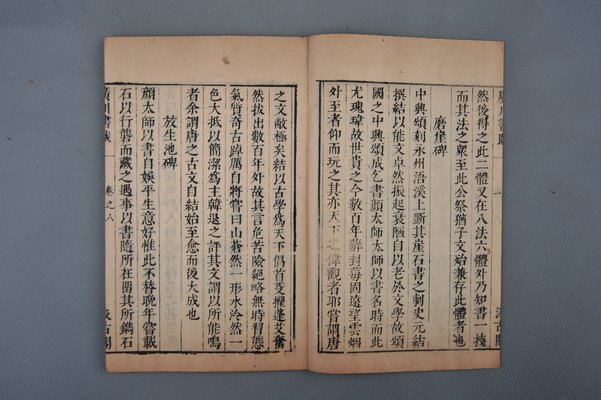 廣川書跋
然後得之此二體又在八法六體外乃知書一技
而其法之衆至此公祭猶子文始兼存此體者也
磨崖碑
中興頌刻永州浯溪上斲其崖石書之刺史元結
撰結以能文卓然振起衰陋自以老於文學故頌
國之中興頌成乞書顔太師太師以書名時而此
尤瑰瑋故世貴之今數百年蘚封莓固遠望雲烟
外至者仰而玩之其亦天下之偉觀者耶嘗謂唐
之文敝極矣結以古學爲天下倡首芟擢蓬艾奮
然拔出數百年外故其言危苦險絕略無時習態
氣質奇古踔厲自將嘗曰山蒼然一形水泠然一
色大抵以簡潔爲主韓退之評其文謂以所能鳴
者余謂唐之古文自結始至愈而後大成也
放生池碑
顔太師以書自娛平生意好惟此不替晚年嘗載
石以行礱而藏之遇事以書隨所在留其鐫石
廣川書跋
卷之八
汲古閣